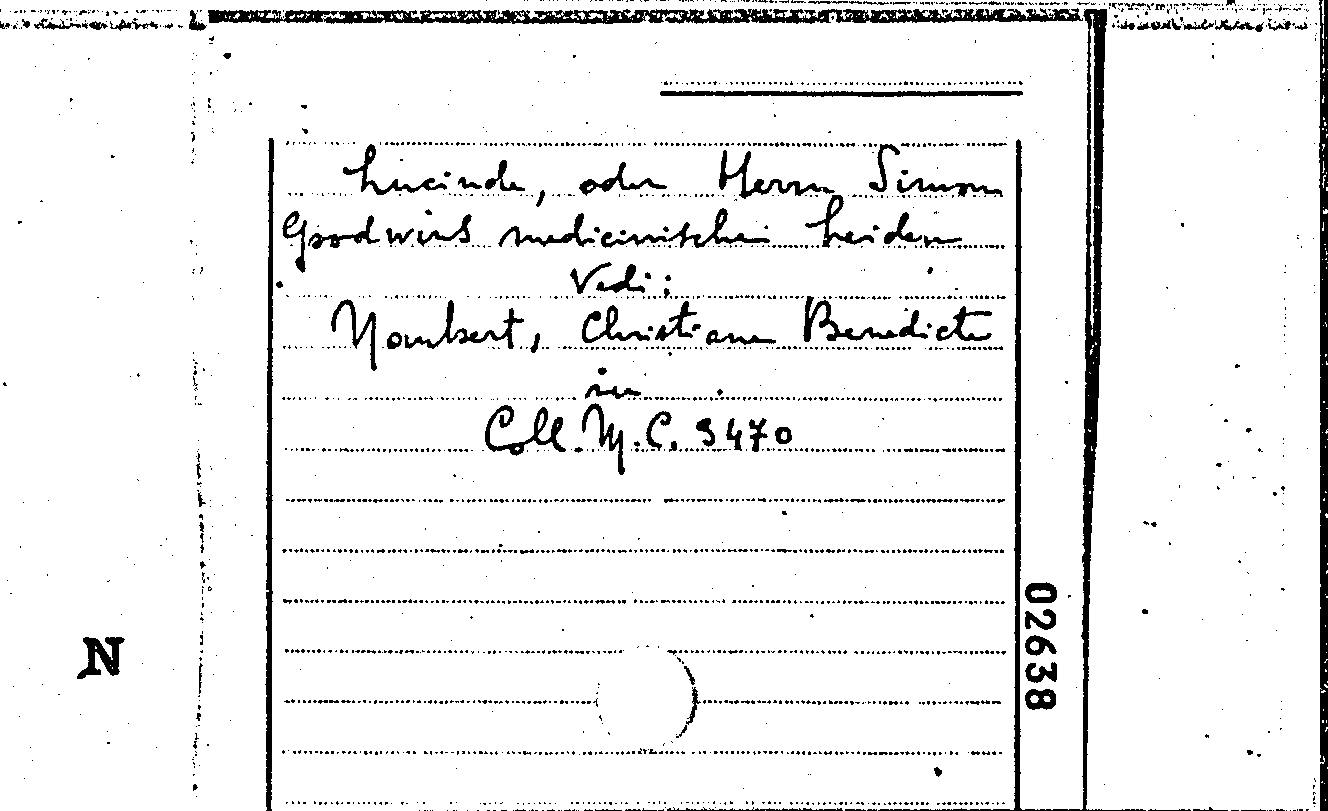 Lucinde, oder Herrn Simon
Goodwins medicinische Leiden
Vedi:
Naubert, Christiane Benedicte
in
Coll. M.C. 3470
02638
N